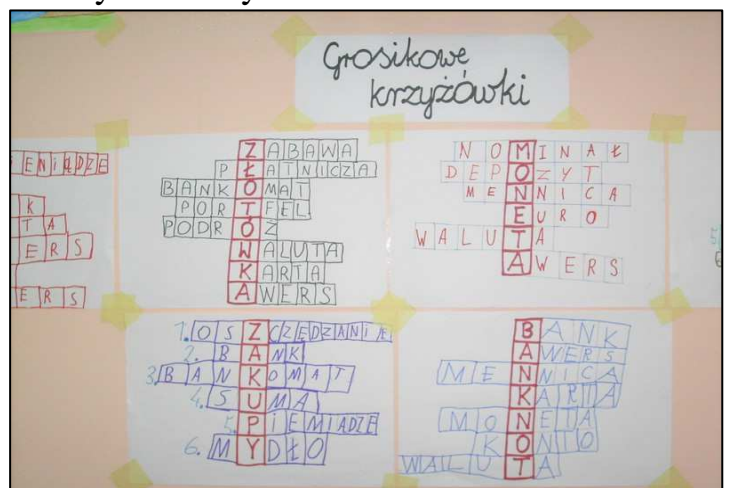 Grosikowe
krzyżówki
ENIĄDZE
K
TA
ERS
ERS
ZABAWA
PŁATNICZA
BANKOMAT
PORTFEL
PODRÓŻ
WALUTA
KARTA
AWERS
NOMINAŁ
DEPOZYT
MENNICA
EURO
WALUTA
AWERS
1. OSZCZĘDZANIE
2. BANK
3. BANKOMAT
4. SUMA
5. PIENIĄDZE
6. MYDŁO
BANK
AWERS
MENNICA
KARTA
MONETA
KONTO
WALUTA